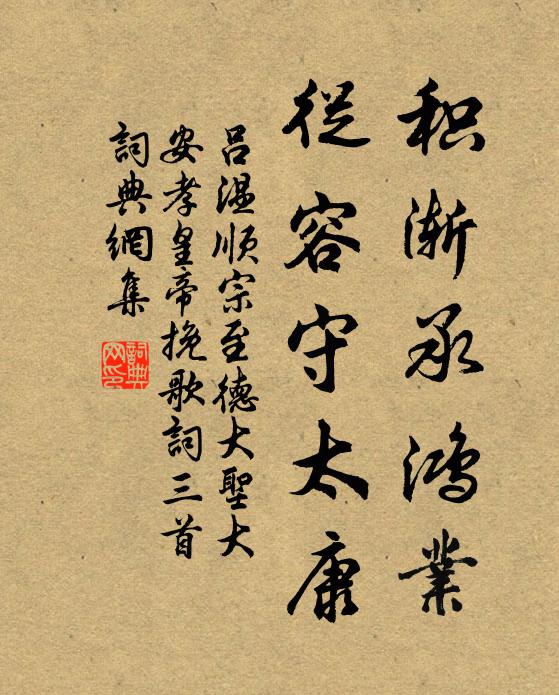 积渐承鸿業
從容守太康
吕温顺宗至德大聖大
安孝皇帝挽歌詞三首
詞典網集
詞典网印